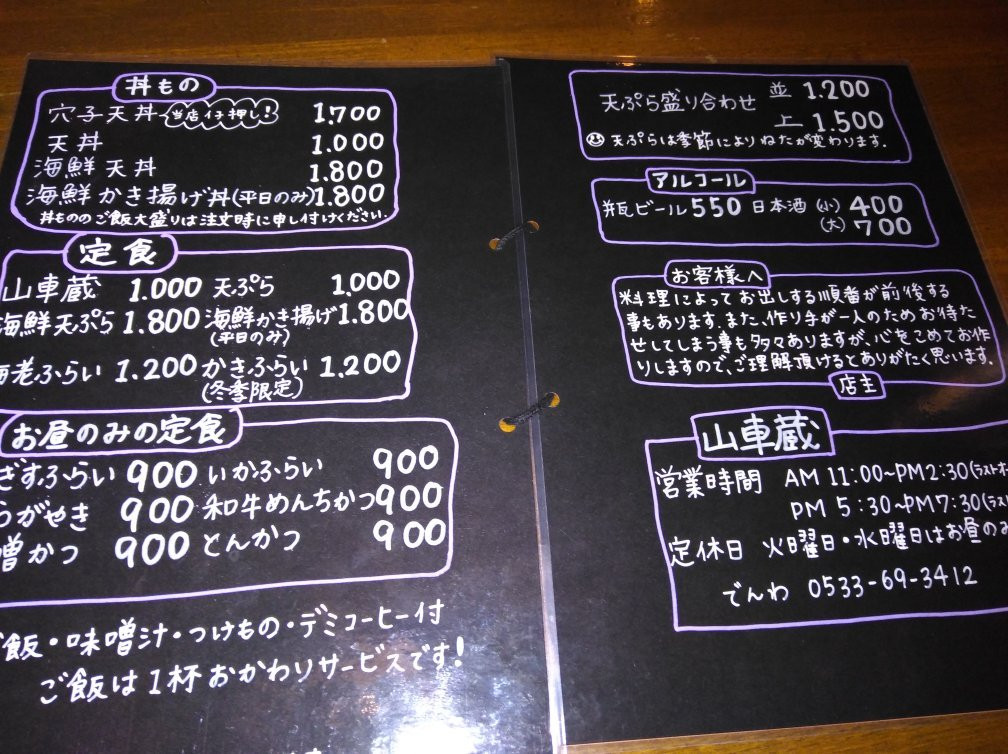 丼もの
穴子天丼 当店イチ押し! 1,700
天丼 1.000
海鮮天丼 1.800
海鮮かき揚げ丼(平日のみ) 1.800
丼もののご飯大盛りは注文時に申し付けください.
定食
山車蔵 1.000 天ぷら 1,000
海鮮天ぷら 1.800 海鮮かき揚げ 1.800
(平日のみ)
海老ふらい 1.200 かきふらい 1,200
(冬季限定)
お昼のみの定食
ぎすふらい 900 いかふらい 900
がやき 900 和牛めんちかつ 900
噌かつ 900 とんかつ 900
飯・味噌汁・つけもの・デミコーヒー付
ご飯は1杯おかわりサービスです!
天ぷら盛り合わせ 並 1.200
上 1.500
天ぷらは季節によりねたが変わります.
アルコール
瓶ビール 550 日本酒 (小) 400
(大) 700
お客様へ
料理によってお出しする順番が前後する
事もあります.また、作り手が一人のためお待た
せしてしまう事も多々ありますが、心をこめてお作
りしますので、ご理解頂けるとありがたく思います.
店主
山車蔵
営業時間 AM 11:00~PM2:30(ラスト
PM 5:30~PM7:30(ラス
定休日 火曜日・水曜日はお昼のみ
でんわ 0533-69-3412